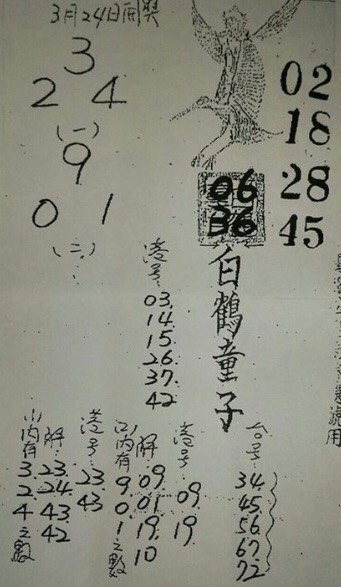 3月24日開獎
3
2 4
(一)
9
0 1
(二)
02
18
28
45
06
36
白鶴童子
港号:
03.
14.
15.
26.
37.
42
台号:
34.
45.
56.
67.
72
港号
09.
19.
解:
09.
01.
19.
10
(2)内有
9.
0.
1之數
港号:
23.
43
解:
23.
24.
43.
42
(1)内有
3.
2.
4之數
號用